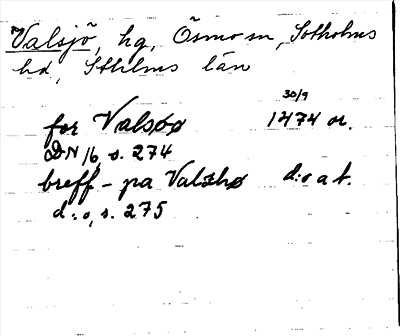 Valsjö, hg, Ösmo sn, Sotholms
hd, Sthlms län
30/9
for Valsøø 1474 or.
DN 16, s. 274
breff - pa Valzhø d:o a f.
d:o, s. 275